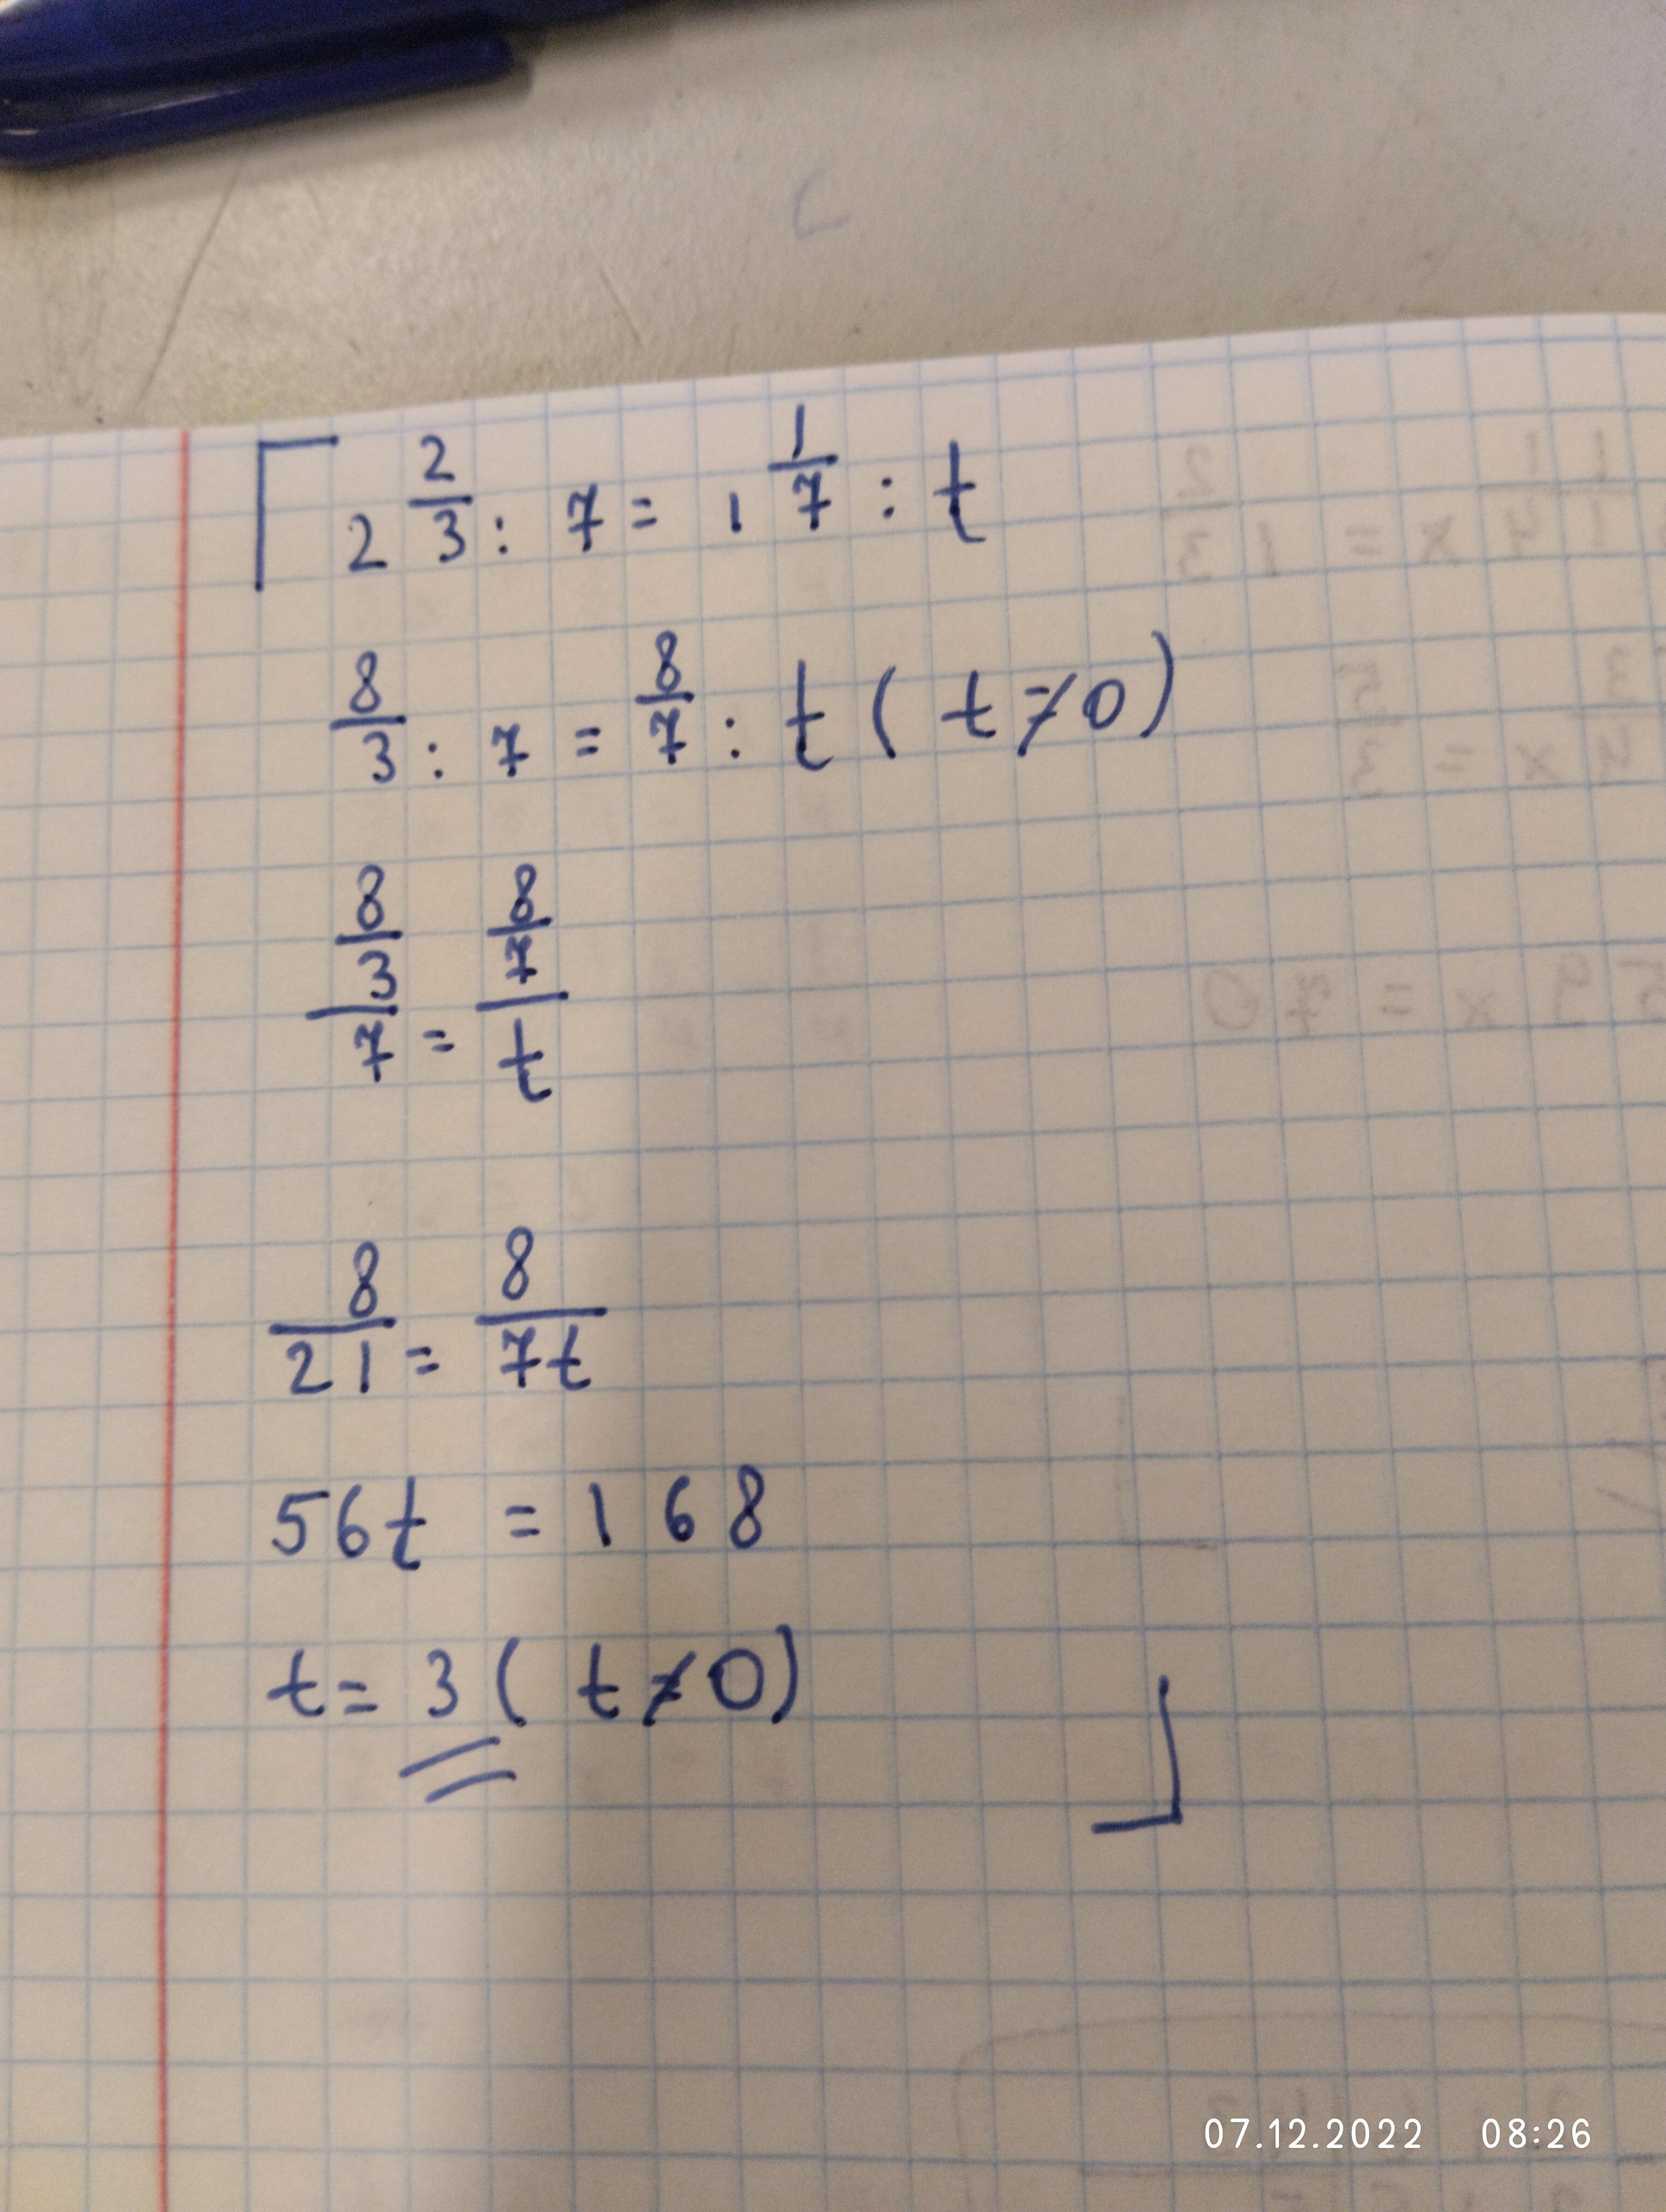 2 2/3 : 7 = 1 1/7 : t
8/3 : 7 = 8/7 : t ( t ≠ 0 )
8/3/7 = 8/7/t
8/21 = 8/7t
56t = 168
t = 3 ( t ≠ 0 )
07.12.2022 08:26